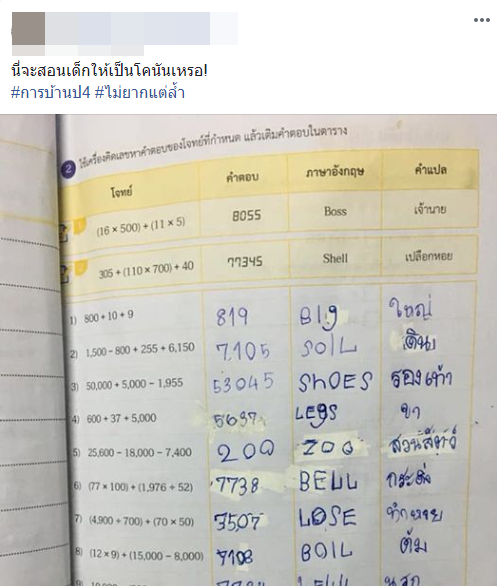 นี่จะสอนเด็กให้เป็นโคนันเหรอ!
#การบ้านป4 #ไม่ยากแต่ล้ำ
2 ใช้เครื่องคิดเลขหาคำตอบของโจทย์ที่กำหนด แล้วเติมคำตอบในตาราง
โจทย์ คำตอบ ภาษาอังกฤษ คำแปล
(16 × 500) + (11 × 5) 8055 Boss เจ้านาย
305 + (110 × 700) + 40 77345 Shell เปลือกหอย
1) 800 + 10 + 9 819 BIg ใหญ่
2) 1,500 - 800 + 255 + 6,150 7,105 SOIL ดิน
3) 50,000 + 5,000 - 1,955 53045 ShOES รองเท้า
4) 600 + 37 + 5,000 5637 LEgS ขา
5) 25,600 - 18,000 - 7,400 200 ZOO สวนสัตว์
6) (77 × 100) + (1,976 ÷ 52) 7738 BELL กระดิ่ง
7) (4,900 ÷ 700) + (70 × 50) 3507 LOSE
8) (12 × 9) + (15,000 - 8,000) 7108 BOIL ต้ม